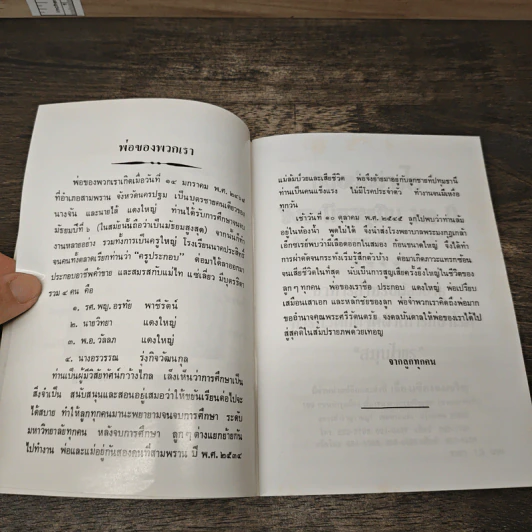 พ่อของพวกเรา
พ่อของพวกเราเกิดเมื่อวันที่ ๑๔ มกราคม พ.ศ.
ที่อำเภอสามพราน จังหวัดนครปฐม เป็นบุตรชายคนเดียวของ
นายจัน และนายไล้ แดงใหญ่ ท่านได้รับการศึกษาจนจบ
มัธยมปีที่ ๖ (ในสมัยนั้นถือว่าเป็นมัธยมสูงสุด) จากนั้นก็ทำ
งานหลายอย่าง รวมทั้งการเป็นครูใหญ่ โรงเรียนนาคประสิทธิ์
จนคนทั้งตลาดเรียกท่านว่า "ครูประกอบ" ต่อมาได้ลาออกมา
ประกอบอาชีพค้าขาย และสมรสกับแม่ไท แซ่เลี่ยว มีบุตรธิดา
รวม ๔ คน คือ
๑. รศ. พญ. อรทัย พาชีรัตน์
๒. นายวิทยา แดงใหญ่
๓. พ.อ. วัลลภ แดงใหญ่
๔. นางอรวรรณ รุ่งกิจวัฒนกุล
ท่านเป็นผู้มีวิสัยทัศน์กว้างไกล เล็งเห็นว่าการศึกษาเป็น
สิ่งจำเป็น สนับสนุนและสอนอยู่เสมอว่าให้ขยันเรียนต่อไปจะ
ได้สบาย ทำให้ลูกทุกคนมานะพยายามจนจบการศึกษา ระดับ
มหาวิทยาลัยทุกคน หลังจบการศึกษา ลูกๆ ต่างแยกย้ายกัน
ไปทำงาน พ่อและแม่อยู่กันสองคนที่สามพราน ปี พ.ศ. ๒๕๓๔
แม่ล้มป่วยและเสียชีวิต พ่อจึงย้ายมาอยู่กับลูกชายที่ปทุมธานี
ท่านเป็นคนแข็งแรง ไม่มีโรคประจำตัว ทำงานจนมีเหงื่อ
ทุกวัน
เช้าวันที่ ๑๐ ตุลาคม พ.ศ. ๒๕๔๕ ลูกไปพบว่าท่านล้ม
อยู่ในห้องน้ำ พูดไม่ได้ จึงนำส่งโรงพยาบาลพระมงกุฎเกล้า
เอ็กซเรย์พบว่ามีเลือดออกในสมอง ก้อนขนาดใหญ่ จึงได้ทำ
การผ่าตัดจนกระทั่งเริ่มรู้สึกตัวบ้าง ต่อมาเกิดภาวะแทรกซ้อน
จนเสียชีวิตในที่สุด นำเป็นการสูญเสียครั้งยิ่งใหญ่ในชีวิตของ
ลูกๆ ทุกคน พ่อของเราชื่อ ประกอบ แดงใหญ่ พ่อเปรียบ
เสมือนเสาเอก และหลักชัยของลูก พ่อจ๋าพวกเราคิดถึงพ่อมาก
ขออำนาจคุณพระศรีรัตนตรัย จงดลบันดาลให้พ่อของเราได้ไป
สู่สุคติในสัมปรายภพด้วยเทอญ
จากลูกทุกคน